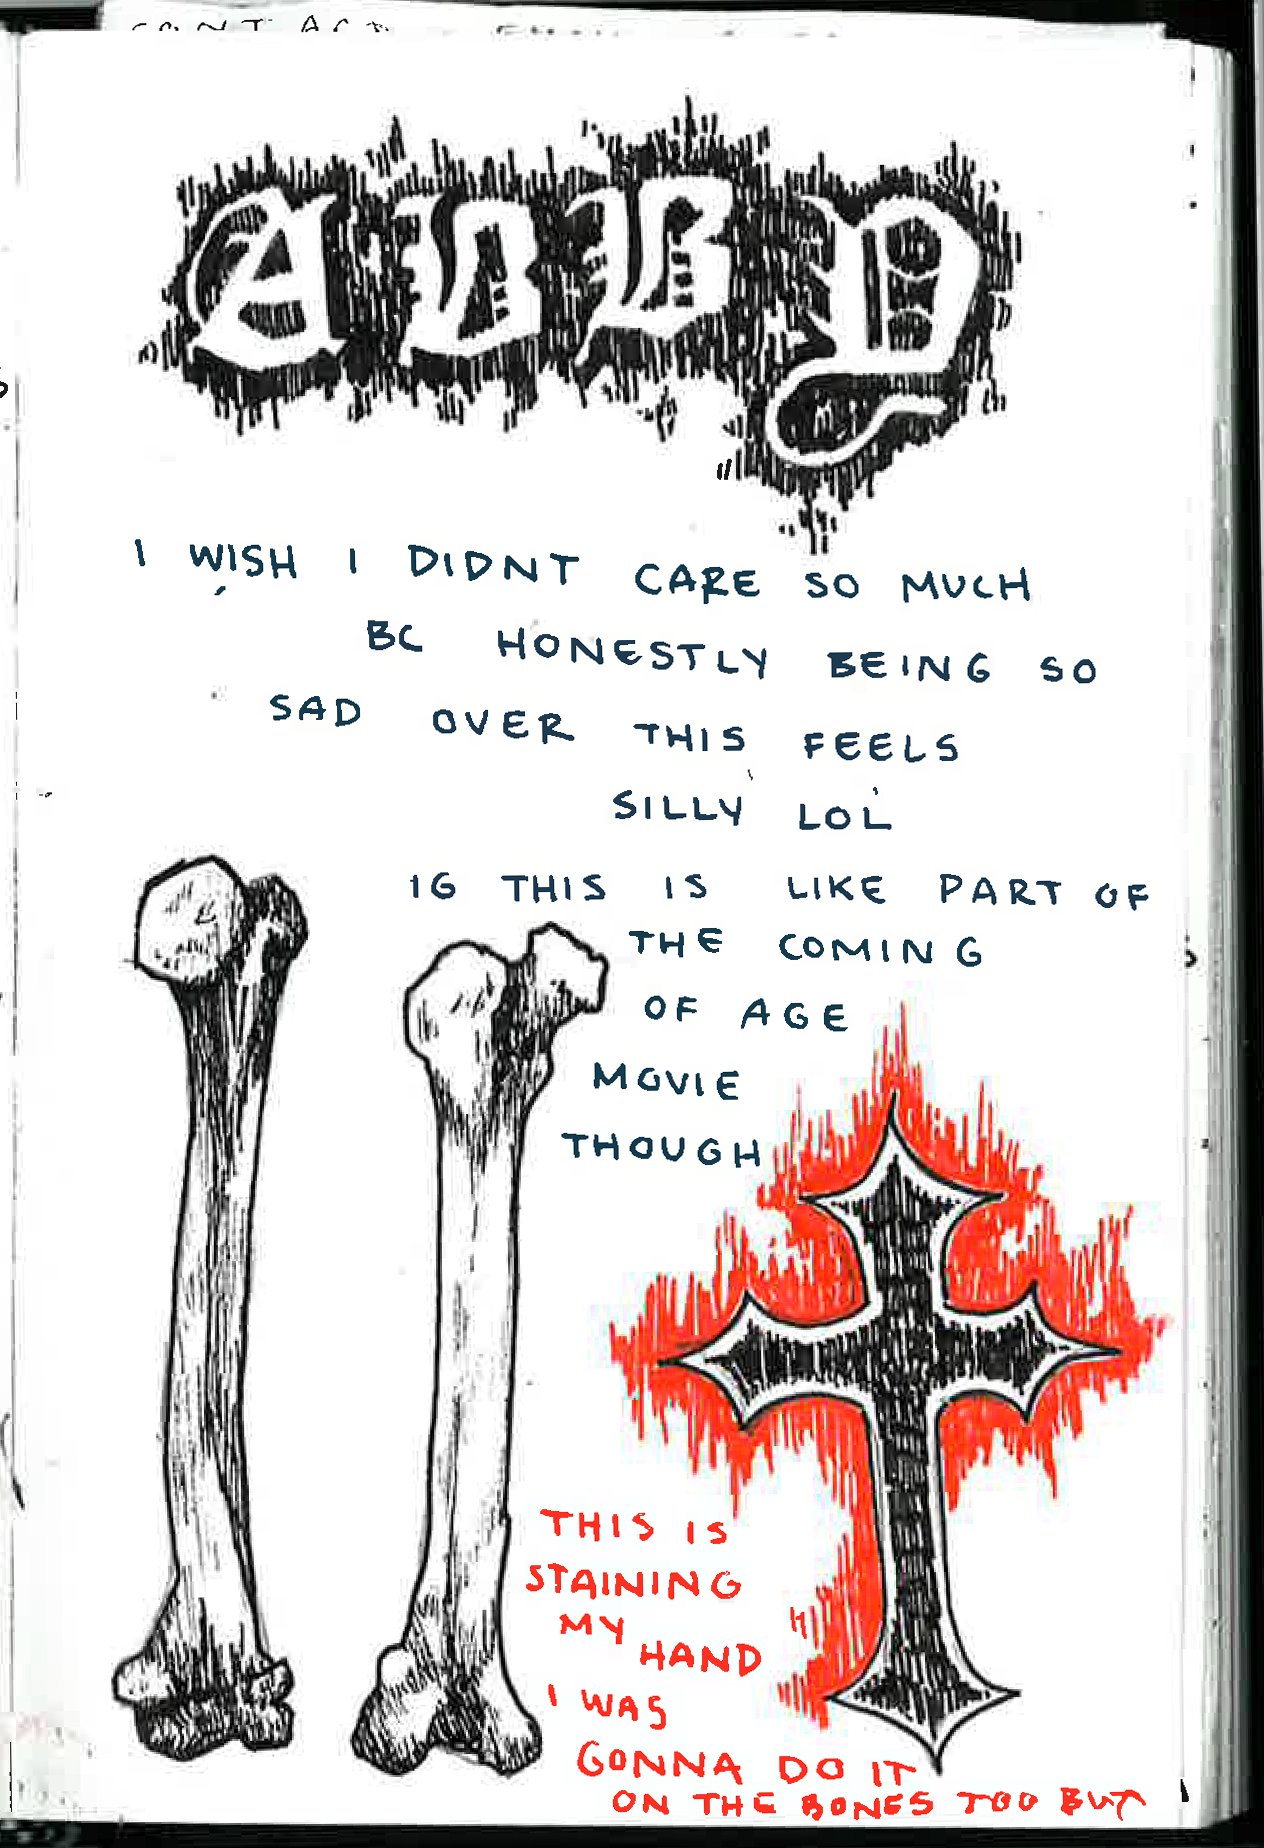 ABBY
I WISH I DIDNT CARE SO MUCH
BC HONESTLY BEING SO
SAD OVER THIS FEELS
SILLY LOL
IG THIS IS LIKE PART OF
THE COMING
OF AGE
MOVIE
THOUGH
THIS IS
STAINING
MY
HAND
I WAS
GONNA DO IT
ON THE BONES TOO BUT